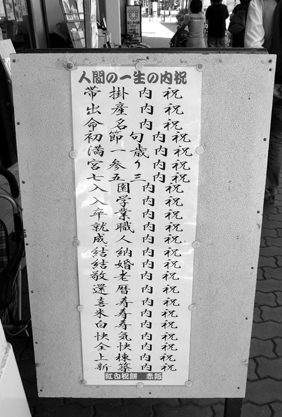 人間の一生の内祝
帯掛内祝
出産内祝
命名内祝
初節句内祝
満一歳内祝
宮参り内祝
七五三内祝
入園内祝
入学内祝
卒業内祝
就職内祝
成人内祝
結納内祝
結婚内祝
敬老内祝
還暦内祝
喜寿内祝
米寿内祝
白寿内祝
快気内祝
全快内祝
上棟内祝
新築内祝
紅白祝餅 赤飯